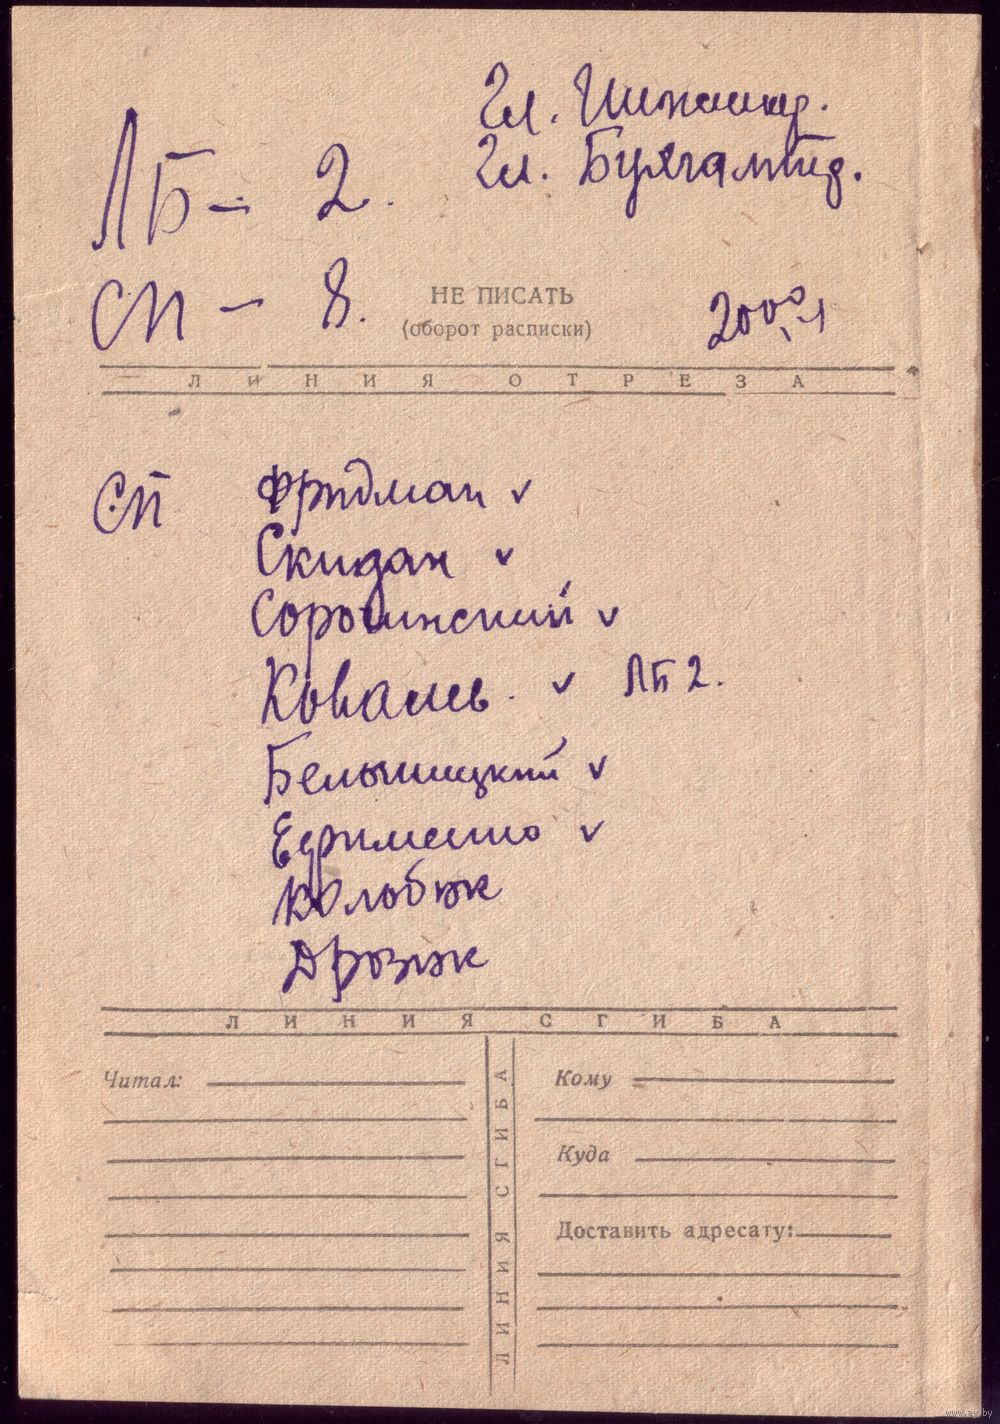 Гл. Инженер.
Гл. Бухгалтер.
ЛБ - 2.
СП - 8.
НЕ ПИСАТЬ
(оборот расписки)
ЛИНИЯ ОТРЕЗА
СП Фридман v
Скидан v
Сорочинский v
Коваль. v ЛБ 2.
Белышицкий v
Ефрименко v
Колобюк
Дрозюк
ЛИНИЯ СГИБА
Читал:
ЛИНИЯ СГИБА
Кому
Куда
Доставить адресату:
www.ay.by